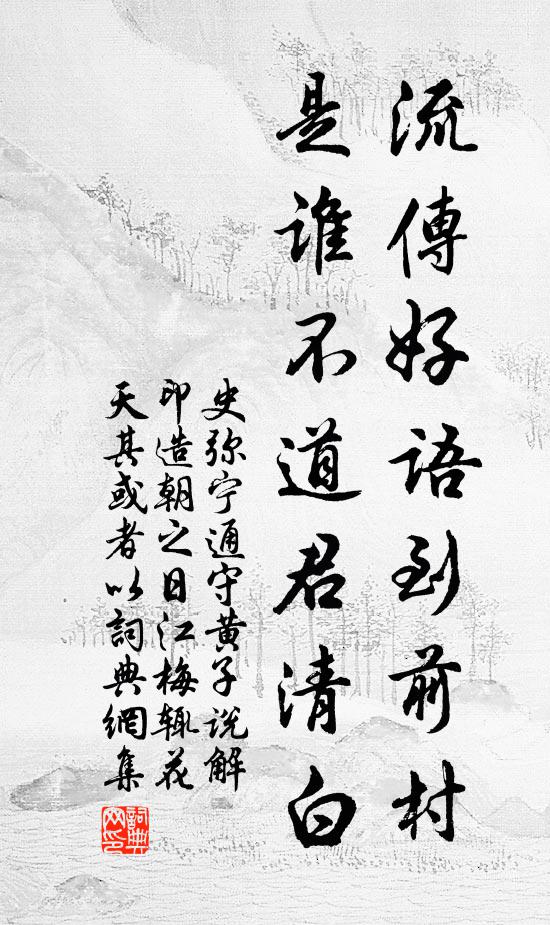 流傳好語到前村
是誰不道君清白
史弥宁通守黄子说解
印造朝之日江梅辄花
天其或者以詞典網集
詞典网印